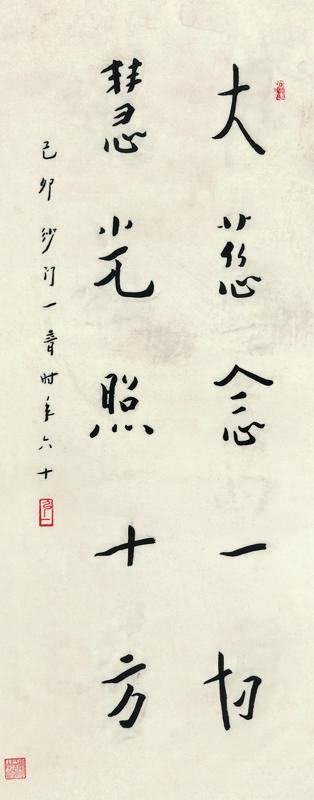 大慈念一切
慧光照十方
己卯沙门一音时年六十